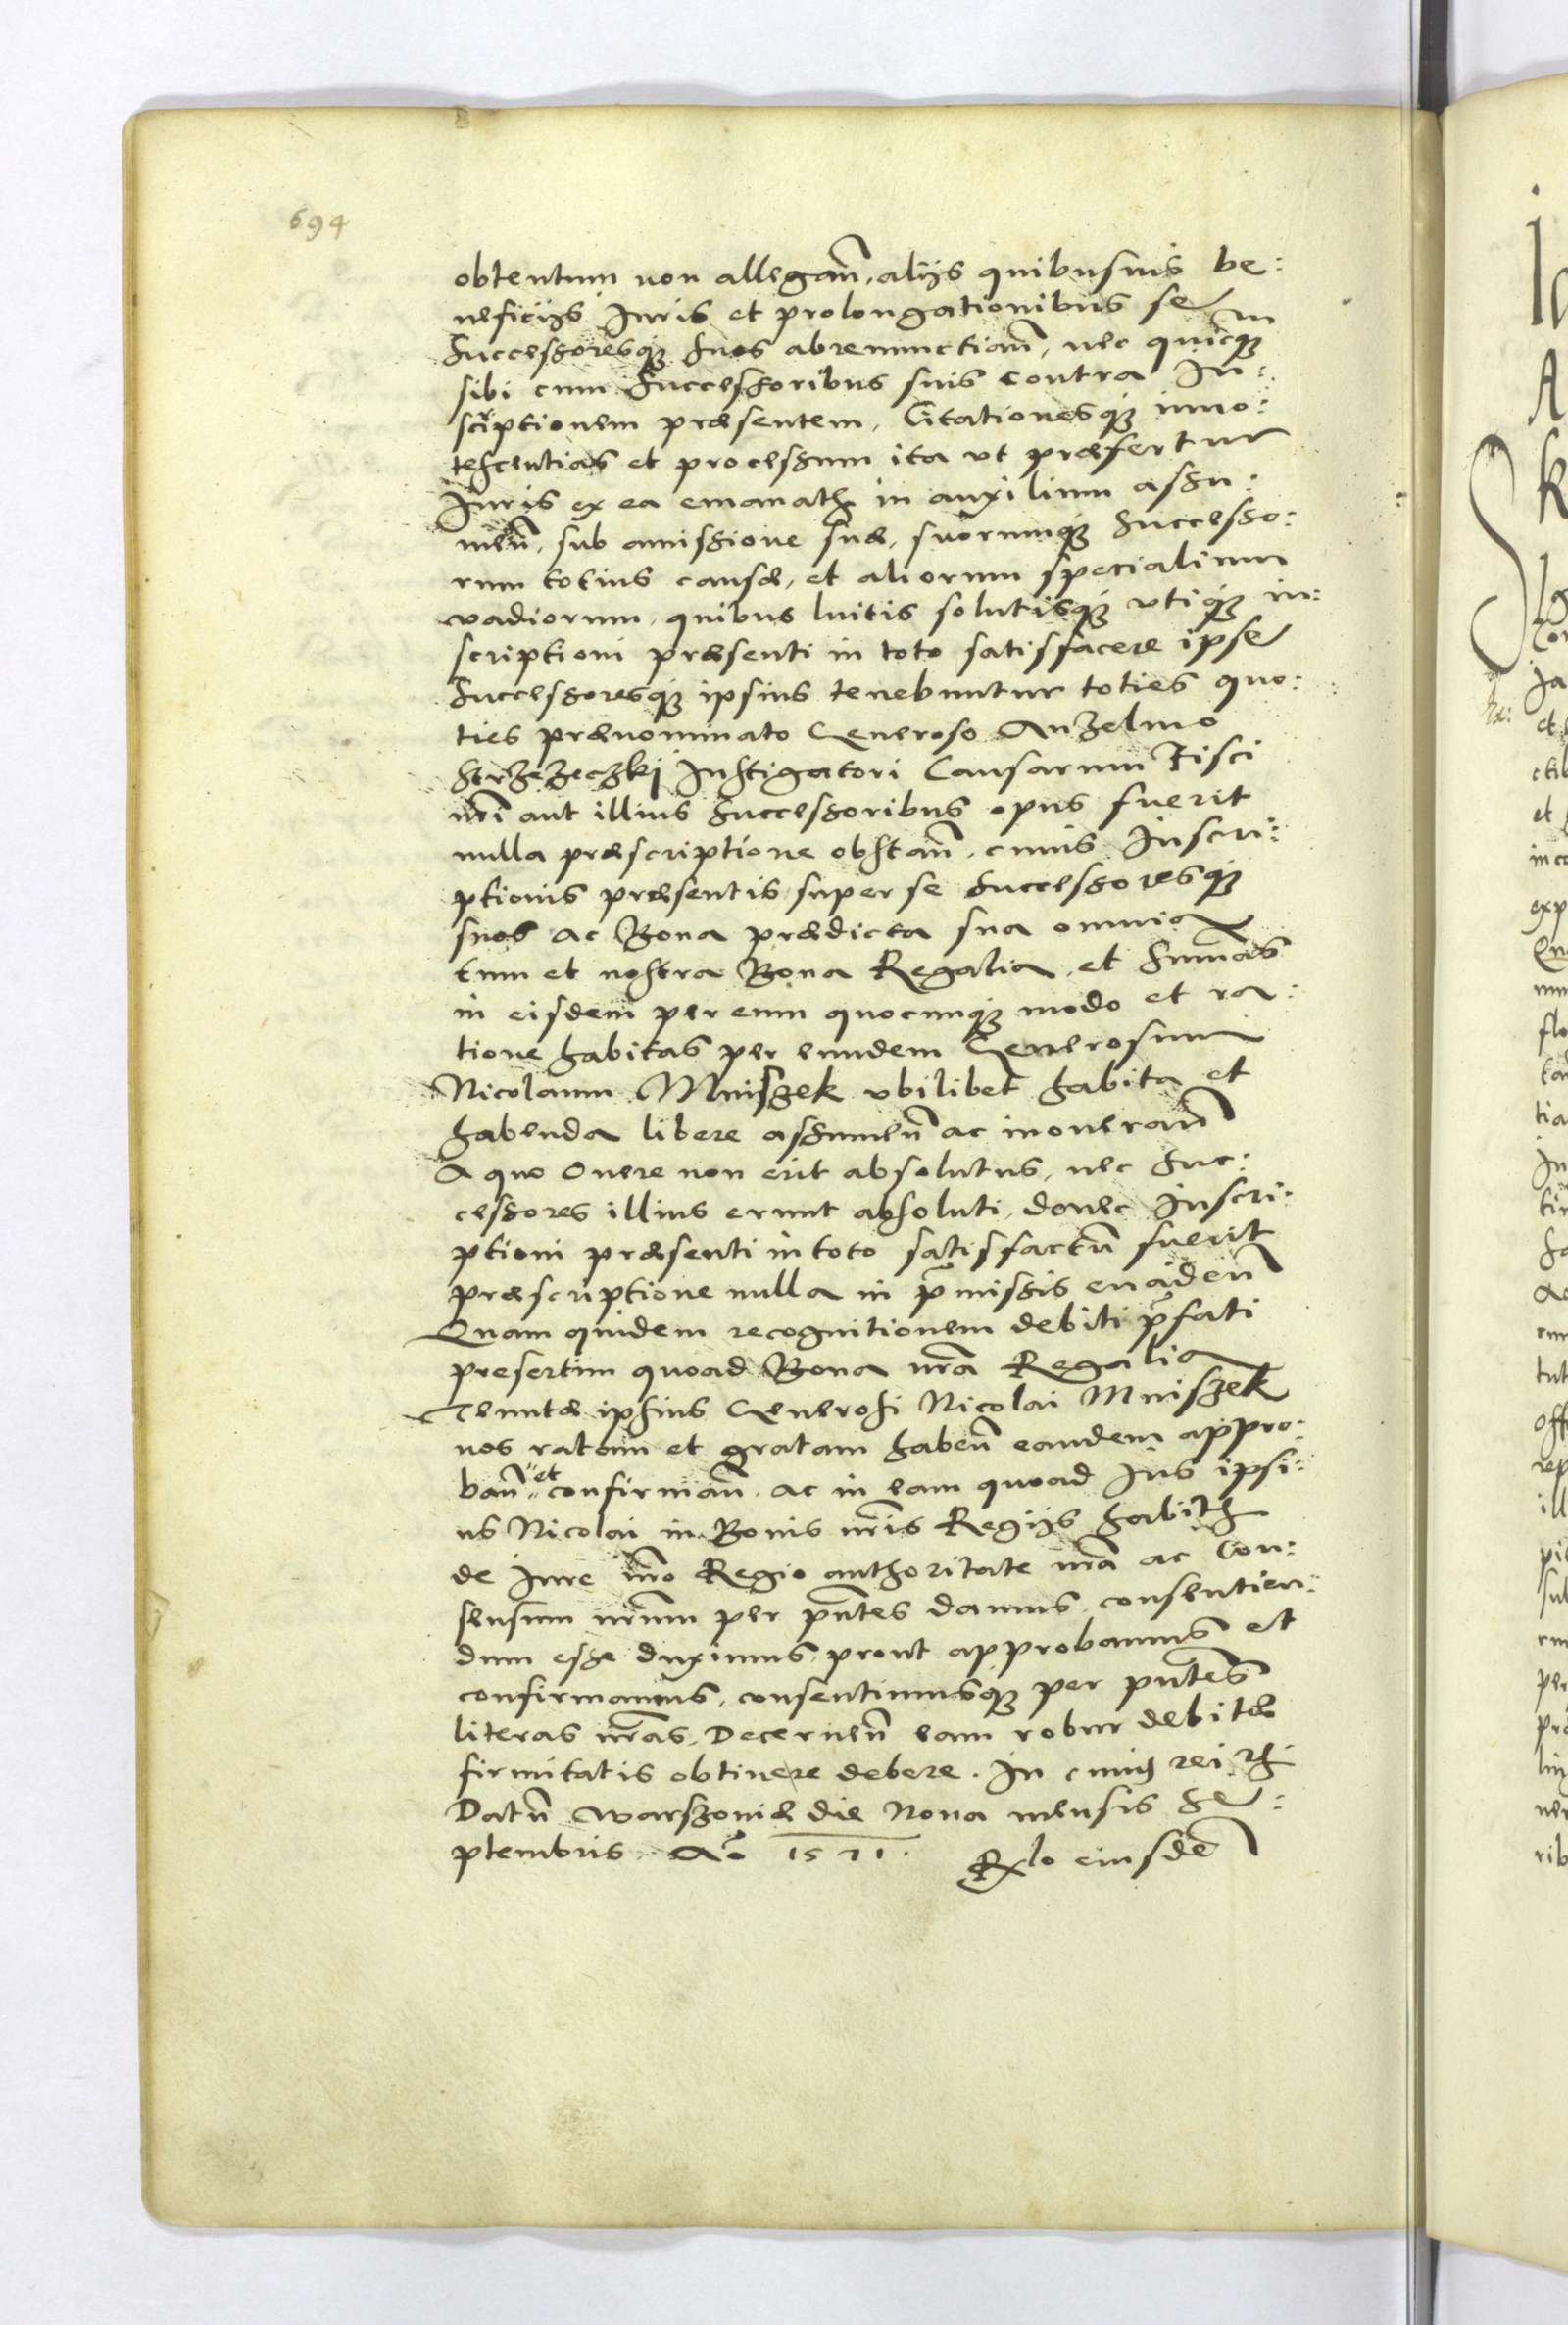 694
obtentum non allegan̄, alijs quibusuis be:
neficijs Iuris et prolongationibus se
Successoresq₃ suos abrenunctian̄, nec quicq₃
sibi cum Successoribus suis contra In:
scriptionem præsentem, Citationesq₃ inno:
tescentias et processum ita vt præfertur
Iuris ex ea emanatꝝ in auxilium assu:
men̄, sub amissione suæ, suorumq₃ Successo:
rum totius causæ, et aliorum specialium
vadiorum, quibus luitis solutisq₃ vtiq₃ in:
scriptioni præsenti in toto satisfacere ipse
Successoresq₃ ipsius tenebuntur toties quo:
ties prænominato Generoso Anzelmo
Strzezeczkj Instigatori Causarum Fisci
nr̄i aut illius Successoribus opus fuerit
nulla præscriptione obstan̄, cuius Inscri:
ptionis præsentis super se Successoresq₃
suos ac Bona prædicta sua omnia
tum et nostra Bona Regalia, et Sum̄as
in eisdem per eum quocunq₃ modo et ra:
tione habitas per eundem Generosum
Nicolaum Mniszek vbilibet habita et
habenda libere assumen̄ ac inoneran̄
A quo Onere non erit absolutus, nec Suc:
cessores illius erunt absoluti, donec Inscri:
ptioni præsenti in toto satisfactū fuerit
præscriptione nulla in p̄missis euaden̄
Quam quidem recognitionem debiti p̄fati
presertim quoad Bona nr̄a Regalia
Tenutæ ipsius Generosi Nicolai Mniszek
nos ratam et gratam haben̄ eandem appro:
ban̄ et confirman̄, ac in eam quoad Ius ipsi:
us Nicolai in Bonis nr̄is Regijs habitꝝ
de Iure nr̄o Regio authoritate nr̄a ac Con:
sensum nr̄um per pn̄tes damus, consentien:
dum esse duximus, prout approbamus et
confirmamus, consentimusq₃ per pn̄tes
literas nr̄as, Decernen̄ eam robur debitæ
firmitatis obtinere debere. In cuius rei
Datū Warszouiæ die Nona mensis Se:
ptembris. Aᵒ 1571. Rlo eiusdē